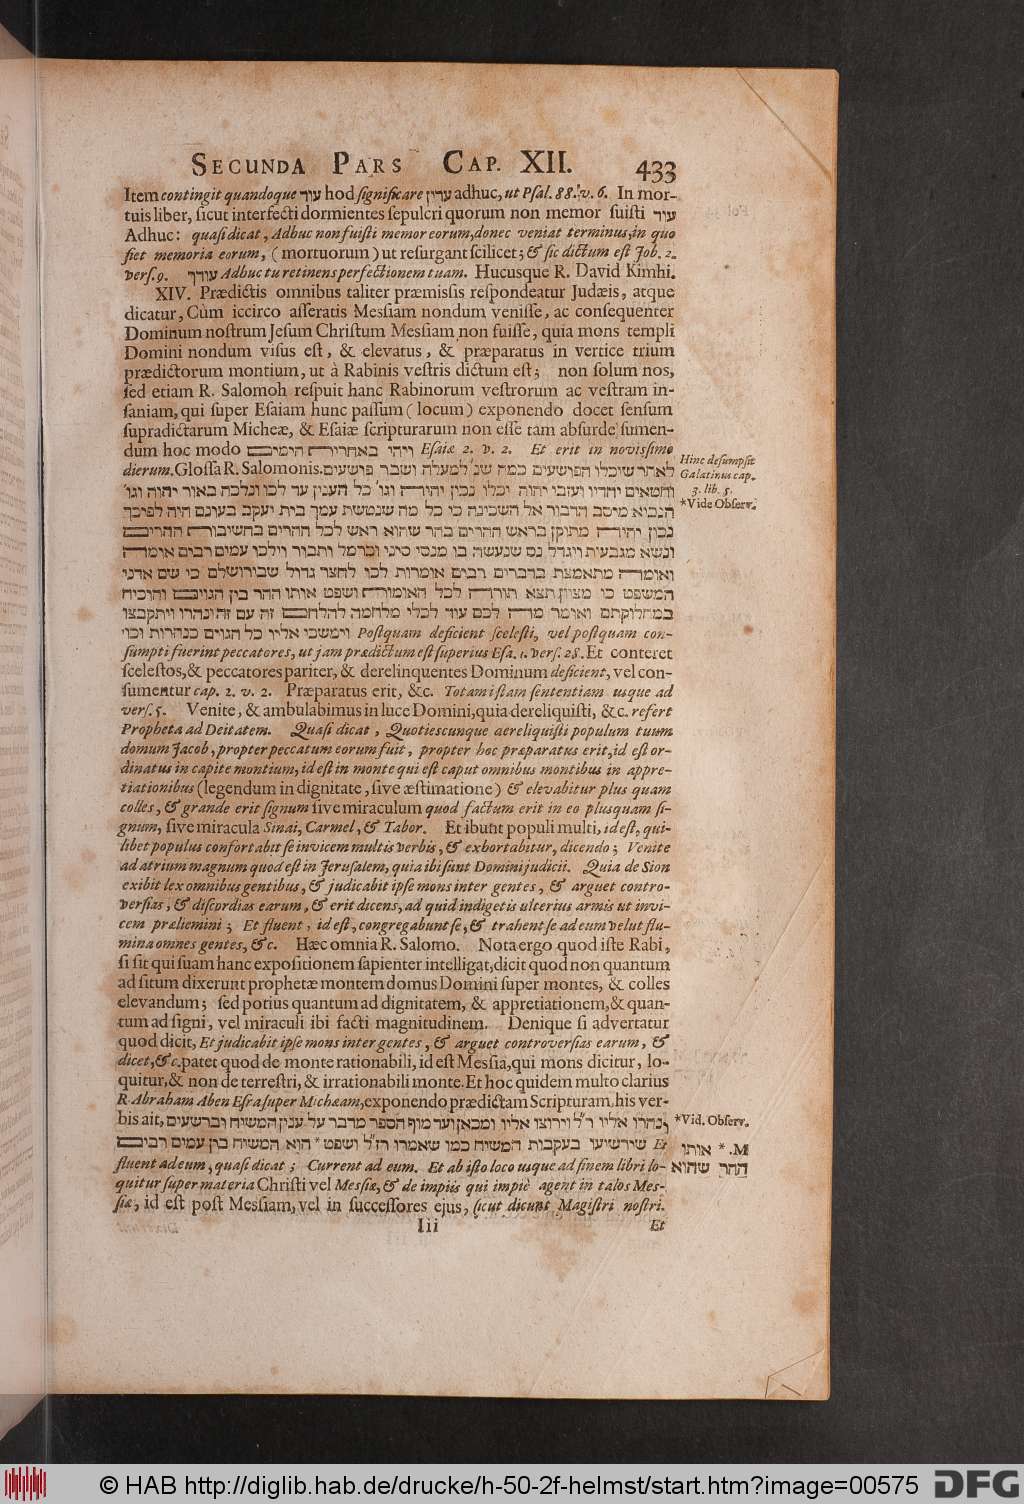 SECUNDA PARS CAP. XII. 433
Item contingit quandoque עוד hod significare עדיין adhuc, ut Psal. 88. v. 6. In mor-
tuis liber, sicut interfecti dormientes sepulcri quorum non memor fuisti עוד
Adhuc: quasi dicat, Adhuc non fuisti memor eorum, donec veniat terminus, in quo
fiet memoria eorum, (mortuorum) ut resurgant scilicet; & sic dictum est Job. 2.
vers. 9. עודך Adhuc tu retinens perfectionem tuam. Hucusque R. David Kimhi.
XIV. Prædictis omnibus taliter præmissis respondeatur Judæis, atque
dicatur, Cùm iccirco asseratis Messiam nondum venisse, ac consequenter
Dominum nostrum Jesum Christum Messiam non fuisse, quia mons templi
Domini nondum visus est, & elevatus, & præparatus in vertice trium
prædictorum montium, ut à Rabinis vestris dictum est; non solum nos,
sed etiam R. Salomoh respuit hanc Rabinorum vestrorum ac vestram in-
saniam, qui super Esaiam hunc passum (locum) exponendo docet sensum
supradictarum Micheæ, & Esaiæ scripturarum non esse tam absurde sumen-
dum hoc modo ויהי באחרית הימים Esaiæ 2. v. 2. Et erit in novissimo
dierum. Glossa R. Salomonis. לאחר שיכלו הפושעים כמה שנ' למעלה ושבר פושעים
וחטאים יחדיו ועזבי יהוה יכלו נכון יהיה וגו' כל הענין עד לכו ונלכה באור יהוה וגו'
הנביא מיסב הדבור אל השכינה כי כל מה שנטשת עמך בית יעקב בעונם היה לפיכך
נכון יהיה מתוקן בראש ההרים בהר שהוא ראש לכל ההרים בחשיבות ההרים
ונשא מגבעות ויגדל נס שנעשה בו מנסי סיני וכרמל ותבור וילכו עמים רבים אומה
ואומה מתאמצת בדברים רבים אומרות לכו לחצר גדול שבירושלם כי שם אדני
המשפט כי מציון תצא תורה לכל האומות ושפט אותו ההר בין הגוים והוכיח
במחלוקתם ואומר מה לכם עוד לכלי מלחמה להלחם זה עם זה ונהרו ויתקבצו
וימשכי אליו כל הגוים כנהרות וכוי Postquam deficient scelesti, vel postquam con-
sumpti fuerint peccatores, ut jam prædictum est superius Esa. 1. vers. 28. Et conteret
scelestos, & peccatores pariter, & derelinquentes Dominum deficient, vel con-
sumentur cap. 2. v. 2. Præparatus erit, &c. Totam istam sententiam usque ad
vers. 5. Venite, & ambulabimus in luce Domini, quia dereliquisti, &c. refert
Propheta ad Deitatem. Quasi dicat, Quotiescunque aereliquisti populum tuum
domum Jacob, propter peccatum eorum fuit, propter hoc præparatus erit, id est or-
dinatus in capite montium, id est in monte qui est caput omnibus montibus in appre-
tiationibus (legendum in dignitate, sive æstimatione) & elevabitur plus quam
colles, & grande erit signum sive miraculum quod factum erit in eo plusquam si-
gnum, sive miracula Sinai, Carmel, & Tabor. Et ibunt populi multi, id est, qui-
libet populus confortabit se invicem multis verbis, & exhortabitur, dicendo; Venite
ad atrium magnum quod est in Jerusalem, quia ibi sunt Domini judicii. Quia de Sion
exibit lex omnibus gentibus, & judicabit ipse mons inter gentes, & arguet contro-
versias, & discordias earum, & erit dicens, ad quid indigetis ulterius armis ut invi-
cem præliemini; Et fluent, id est, congregabunt se, & trahent se ad eum velut flu-
mina omnes gentes, &c. Hæc omnia R. Salomo. Nota ergo quod iste Rabi,
si sit qui suam hanc expositionem sapienter intelligat, dicit quod non quantum
ad situm dixerunt prophetæ montem domus Domini super montes, & colles
elevandum; sed potius quantum ad dignitatem, & appretiationem, & quan-
tum ad signi, vel miraculi ibi facti magnitudinem. Denique si advertatur
quod dicit, Et judicabit ipse mons inter gentes, & arguet controversias earum, &
dicet, &c. patet quod de monte rationabili, id est Messia, qui mons dicitur, lo-
quitur, & non de terrestri, & irrationabili monte. Et hoc quidem multo clarius
R. Abraham Aben Esra super Michæam, exponendo prædictam Scripturam, his ver-
bis ait, ונהרו אליו ר"ל וירוצו אליו ומכאן ועד סוף הספר מדבר על ענין המשיח וברשעים
שירשיעו בעקבות המשיח כמו שאמרו רז"ל ושפט * הוא המשיח בין עמים רבים Et
fluent ad eum, quasi dicat; Current ad eum. Et ab isto loco usque ad finem libri lo-
quitur super materia Christi vel Messiæ, & de impiis qui impiè agent in talos Mes-
siæ, id est post Messiam, vel in successores ejus, sicut dicunt Magistri nostri.
Iii Et
Hinc desumpsit
Galatinus cap.
3. lib. 5.
*Vide Observ.
*Vid. Observ.
M. * אותו
ההר שהוא
© HAB http://diglib.hab.de/drucke/h-50-2f-helmst/start.htm?image=00575 DFG